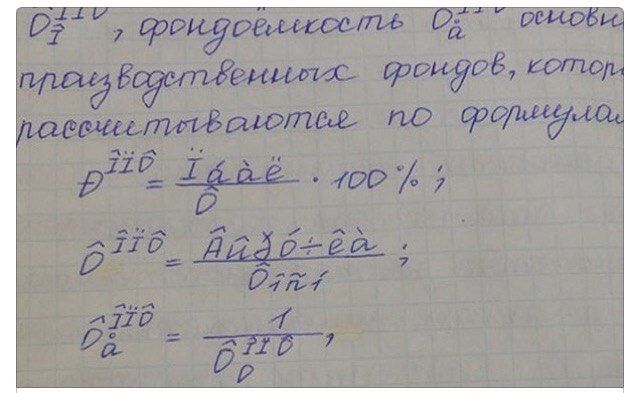 Ô ÎÏÔ Î, фондоёмкость Ô ÎÏÔ å основн
производственных фондов, котор
рассчитываются по формулам
Ð ÎÏÔ = Ïáàë / Ô · 100%;
Ô ÎÏÔ = Âûðó÷êà / Ôîñí ;
Ô ÎÏÔ å = 1 / Ô ÎÏÔ О,